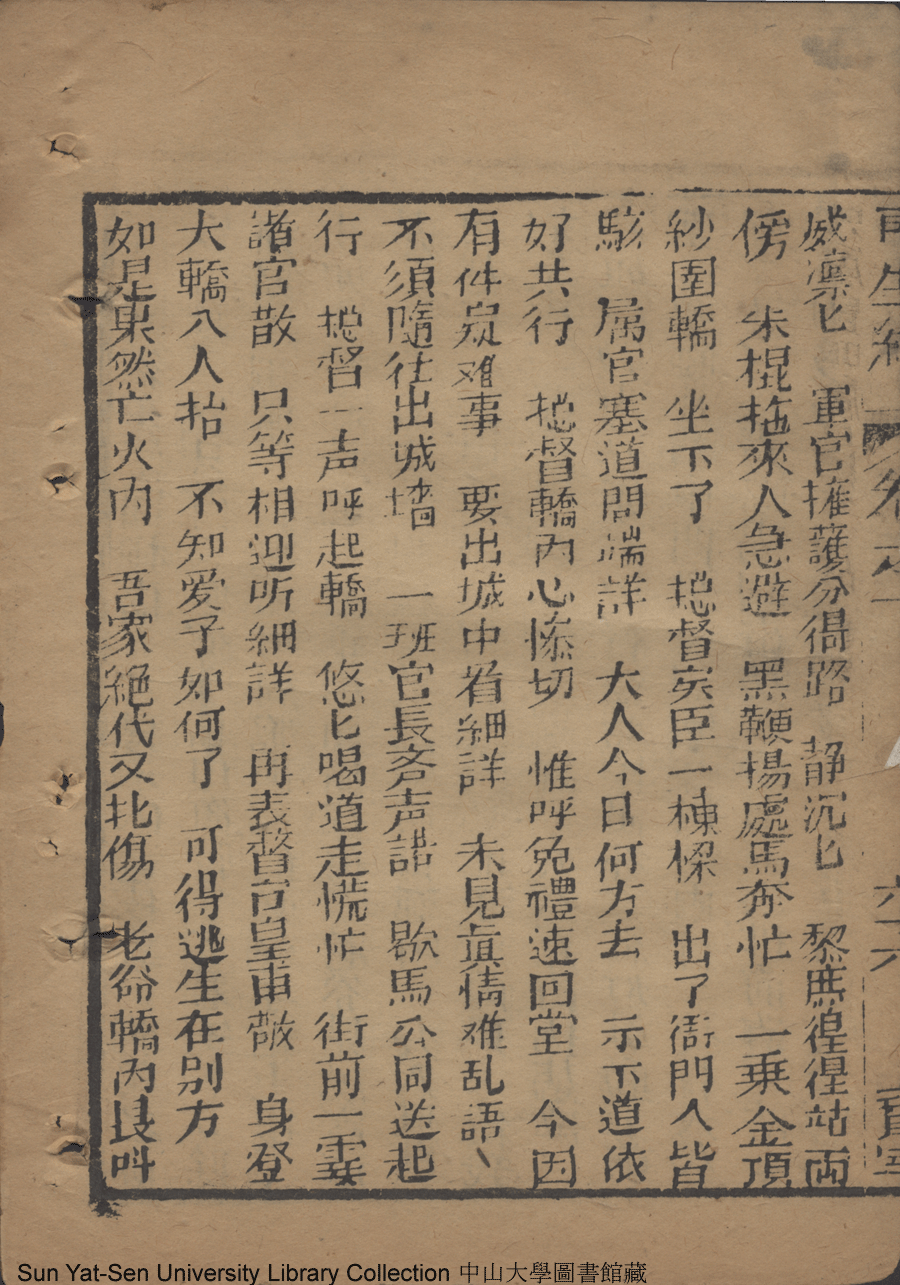 再生緣 卷之一 六十六
威凜匕 軍官擁護分得路 静沉匕 黎庶徨徨站両
傍 朱棍拖來人急避 黑鞭揚處馬奔忙 一乗金頂
紗圍轎 坐下了 捴督矦臣一棟樑 出了衙門人皆
駭 属官塞道問端詳 大人今日何方去 示下道依
好共行 捴督轎内心慘切 惟呼免禮速回堂 今因
有件㝡难事 要出城中看細詳 未見真情难乱語
不須隨往出城墻 一班官長斉声諾 歇馬公同送起
行 捴督一声呼起轎 悠匕喝道走慌忙 街前一霎
諸官散 只等相迎听細詳 再表督台皇甫敬 身登
大轎八人抬 不知爱子如何了 可得逃生在别方
如是果然亡火内 吾家絕代又 傷 老爺轎内 叫
Sun Yat-Sen University Library Collection 中山大學圖書館藏